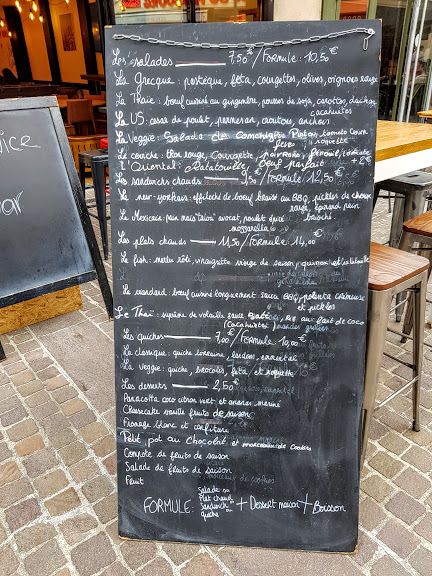 ICE
ar
Les salades 7,50€ / Formule : 10,50€
La Grecque : pastèque, féta, courgettes, olives, oignons rouge
La Thaïe : boeuf cuisiné au gingembre, pousses de soja, carottes, daikon
cacahuètes
La US : assa de poulet, parmesan, croutons, anchois
La Veggie : Salade de Camembert Patate, tomate
roquette
La couche : thon rouge, Courgette, poivrons, fenouil, tomate
L'Oriental : Ratatouille oeuf parfait + 2€
Les sandwichs chauds 9,50 / FORMULE 12,50€
Le new-yorkais : effiloché de boeuf braisé au BBQ, pickles de choux
rouge
La Mexicain : pain maïs avocat, poulet brioché
mozzarella
Les plats chauds 11,50 / FORMULE : 14,00€
Le fish : merlu rôti, vinaigrette vierge de saison
Le standard : boeuf cuisiné longuement sauce BBQ, polenta crémeuse
et pickles
Le Thaï : suprême de volaille sauce riz au lait de coco
(cacahuètes)
Les quiches 7,00€ / FORMULE : 10,00€
La classique : quiche lorraine, lardons, emmental
La Veggie : quiche, brocolis, féta et roquette
Les desserts 2,50€
Pannacotta coco citron vert et ananas mariné
Cheesecake vanille fruits de saison
Fromage blanc et confiture
Petit pot au chocolat et morceaux de cookies
Compote de fruits de saison
Salade de fruits de saison
Fruit
FORMULE : Salade ou
Plat chaud
Sandwich ou
quiche + Dessert maison + Boisson